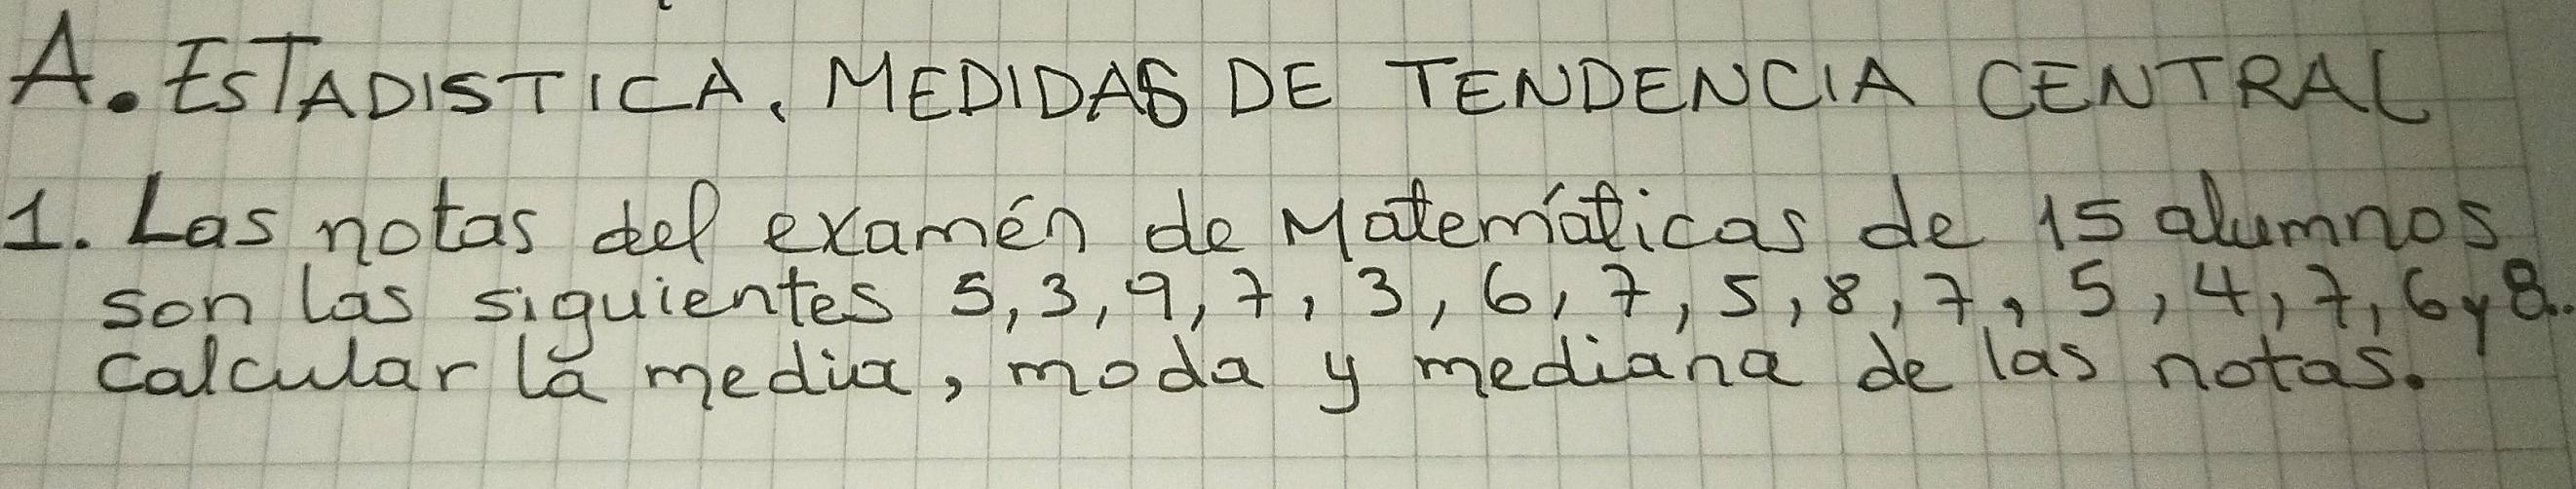 A. ESTADISTICA. MEDIDAS DE TENDENCIA CENTRAL
1. Las notas del examén de Matemáticas de 15 alumnos
son las siguientes 5, 3, 9, 7, 3, 6, 7, 5, 8, 7, 5, 4, 7, 6 y 8.
calcular la media, moda y mediana de las notas.